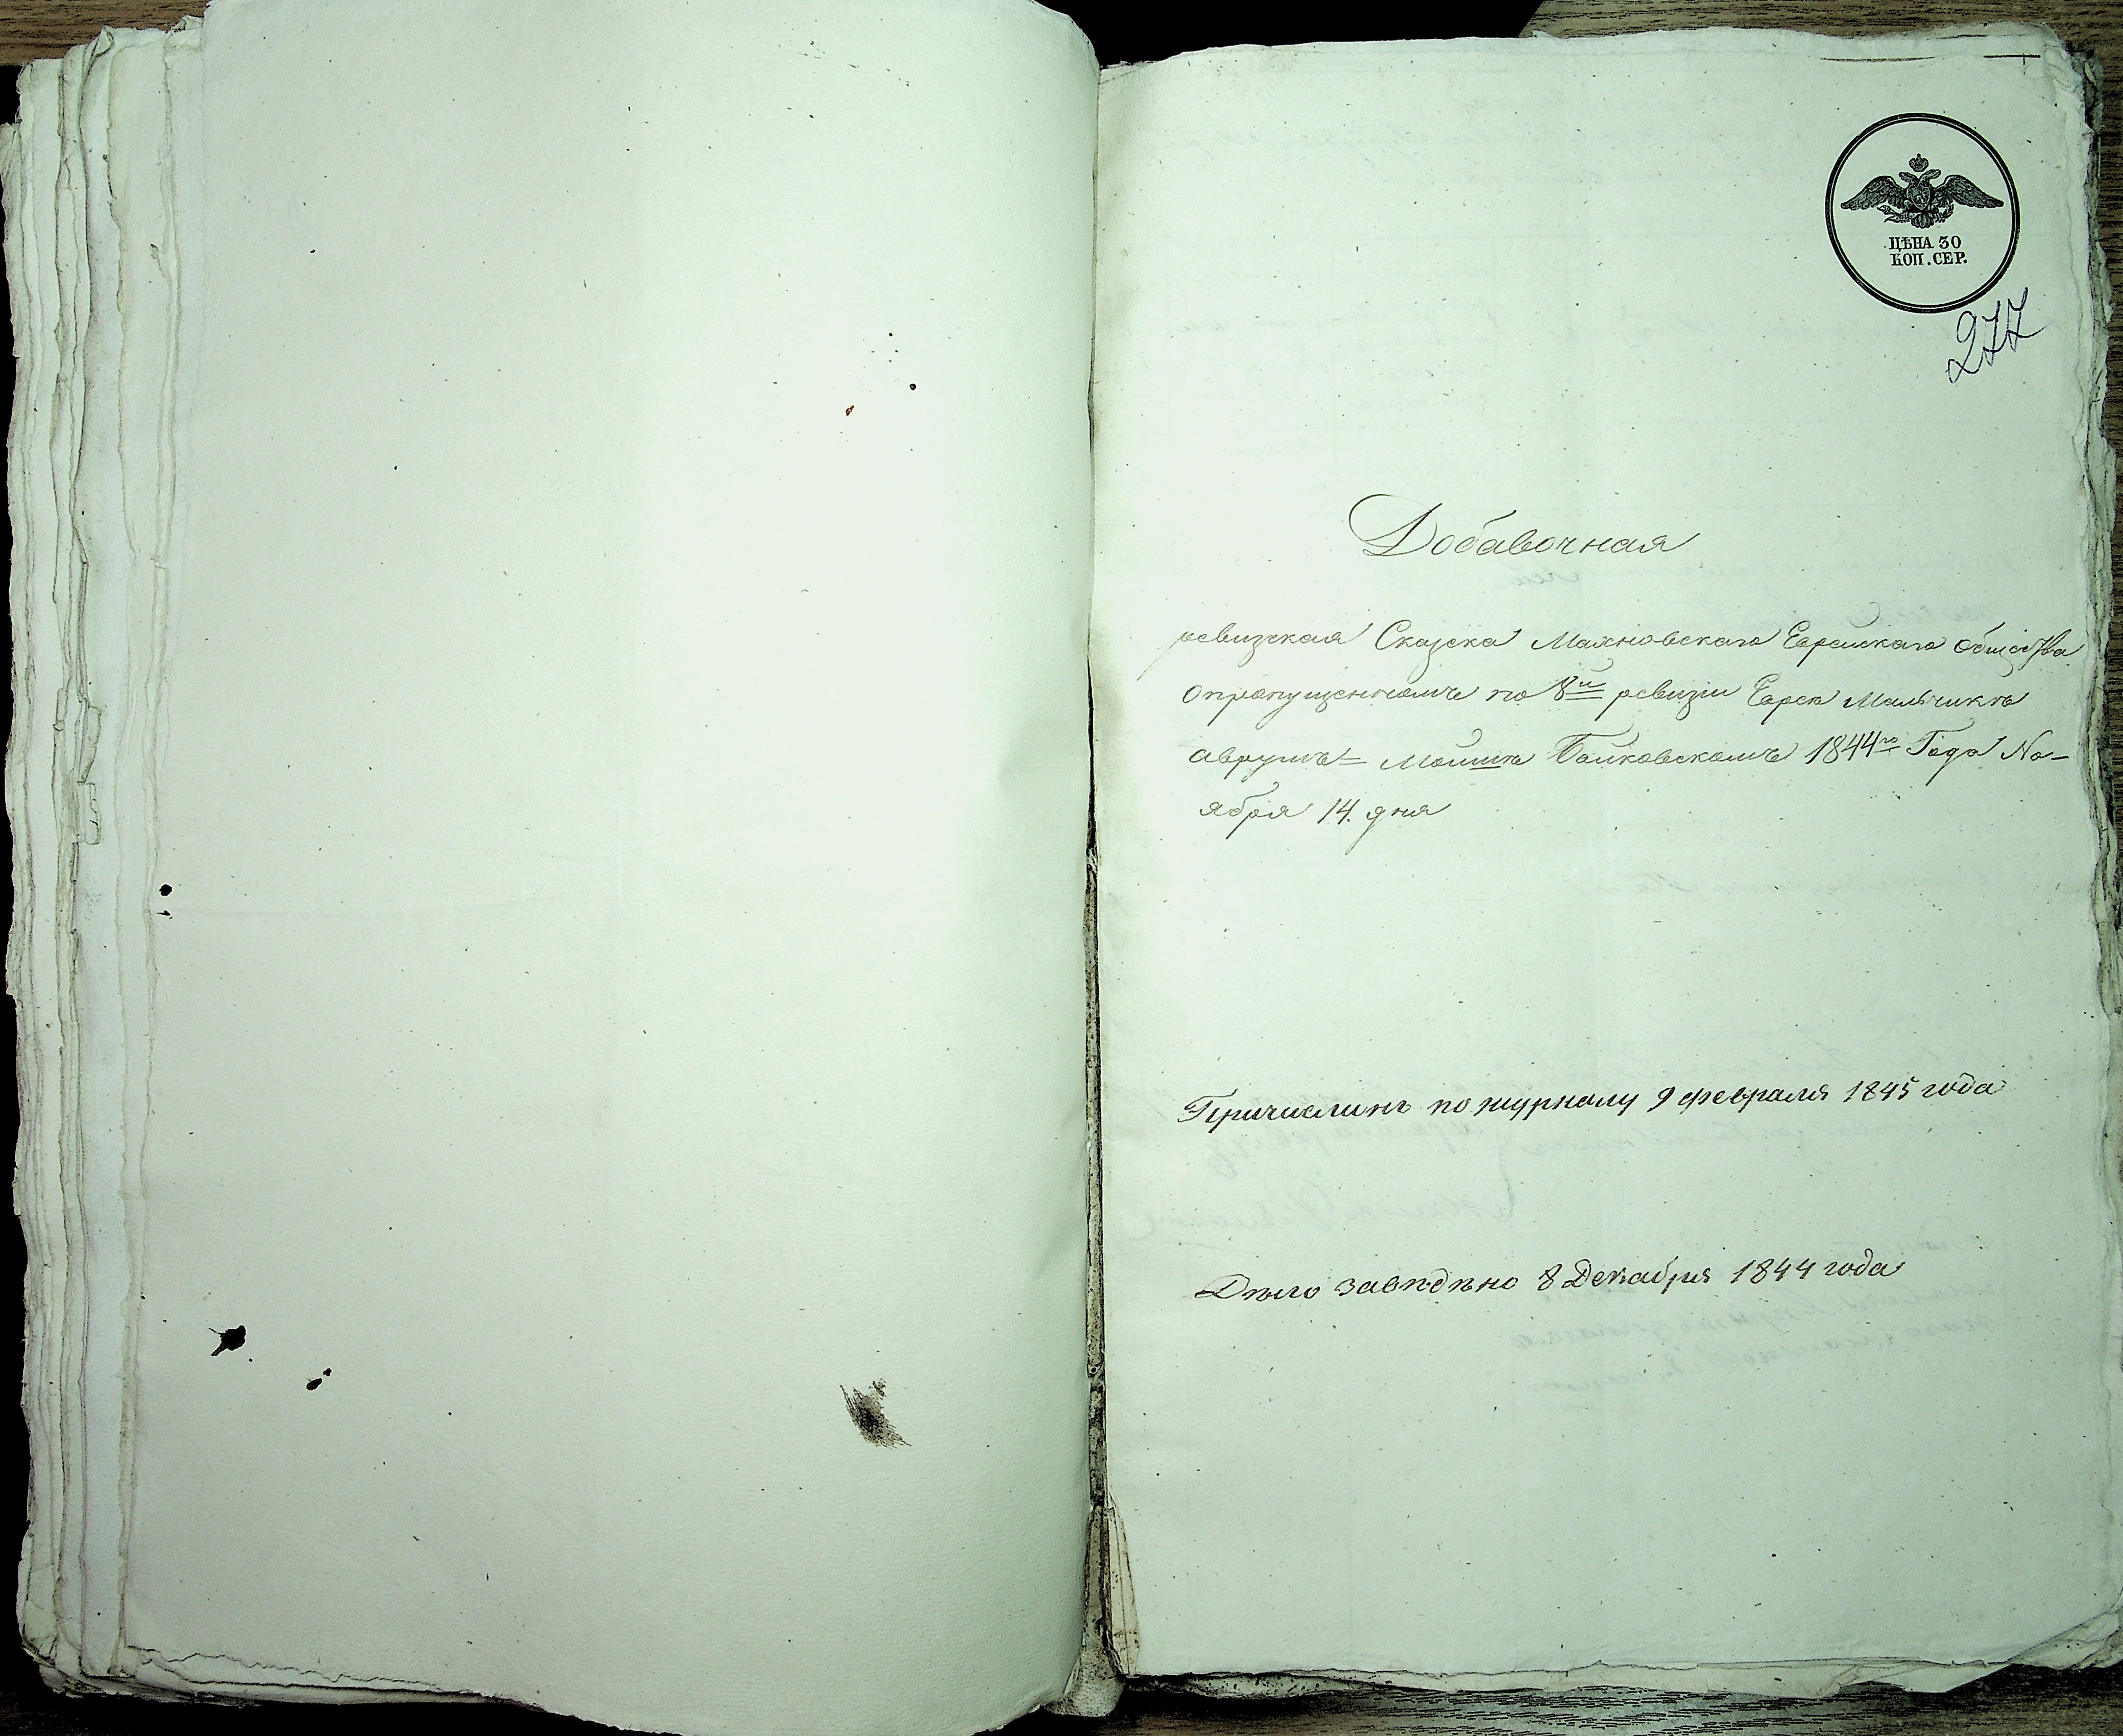 ЦѢНА 30
КОП. СЕР.
277
Добавочная
ревизская Сказска Махновскаго Еврейскаго общества
опропущенномъ по 8й ревизіи Еврея Мальчикѣ
Аврумъ= Мошкѣ Байковскомъ 1844го Года Но-
ября 14. дня
Причислинъ по журналу 9 февраля 1845 года
Дѣло завѣдѣно 8 Декабря 1844 года